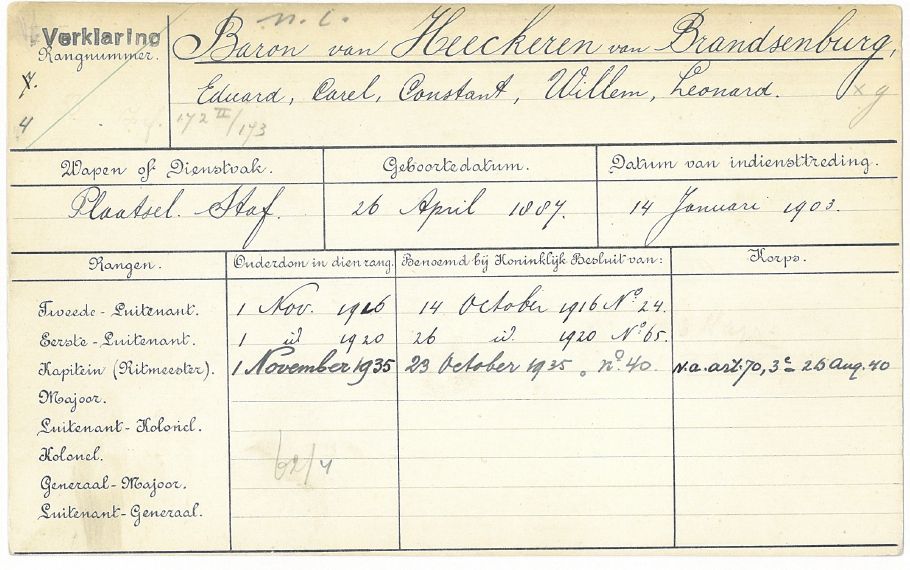 n.c.
Verklaring
Rangnummer.
Baron van Heeckeren van Brandsenburg,
Eduard, Carel, Constant, Willem, Leonard. x g
4
172 II/173
Wapen of Dienstvak. Geboortedatum. Datum van indiensttreding.
Plaatsel. Staf. 26 April 1887. 14 Januari 1903.
Rangen. Ouderdom in dien rang. Benoemd bij Koninklijk Besluit van: Korps.
Tweede-Luitenant. 1 Nov. 1916 14 October 1916 No 24.
Eerste-Luitenant. 1 id 1920 26 id 1920 No 65.
Kapitein (Ritmeester). 1 November 1935 23 October 1935 no. 40. v.a. art. 70, 3e 26 Aug. 40
Majoor.
Luitenant-Kolonel.
Kolonel.
Generaal-Majoor.
Luitenant-Generaal.